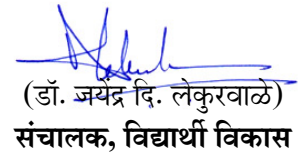 (डॉ. जयेंद्र दि. लेकुरवाळे)
संचालक, विद्यार्थी विकास